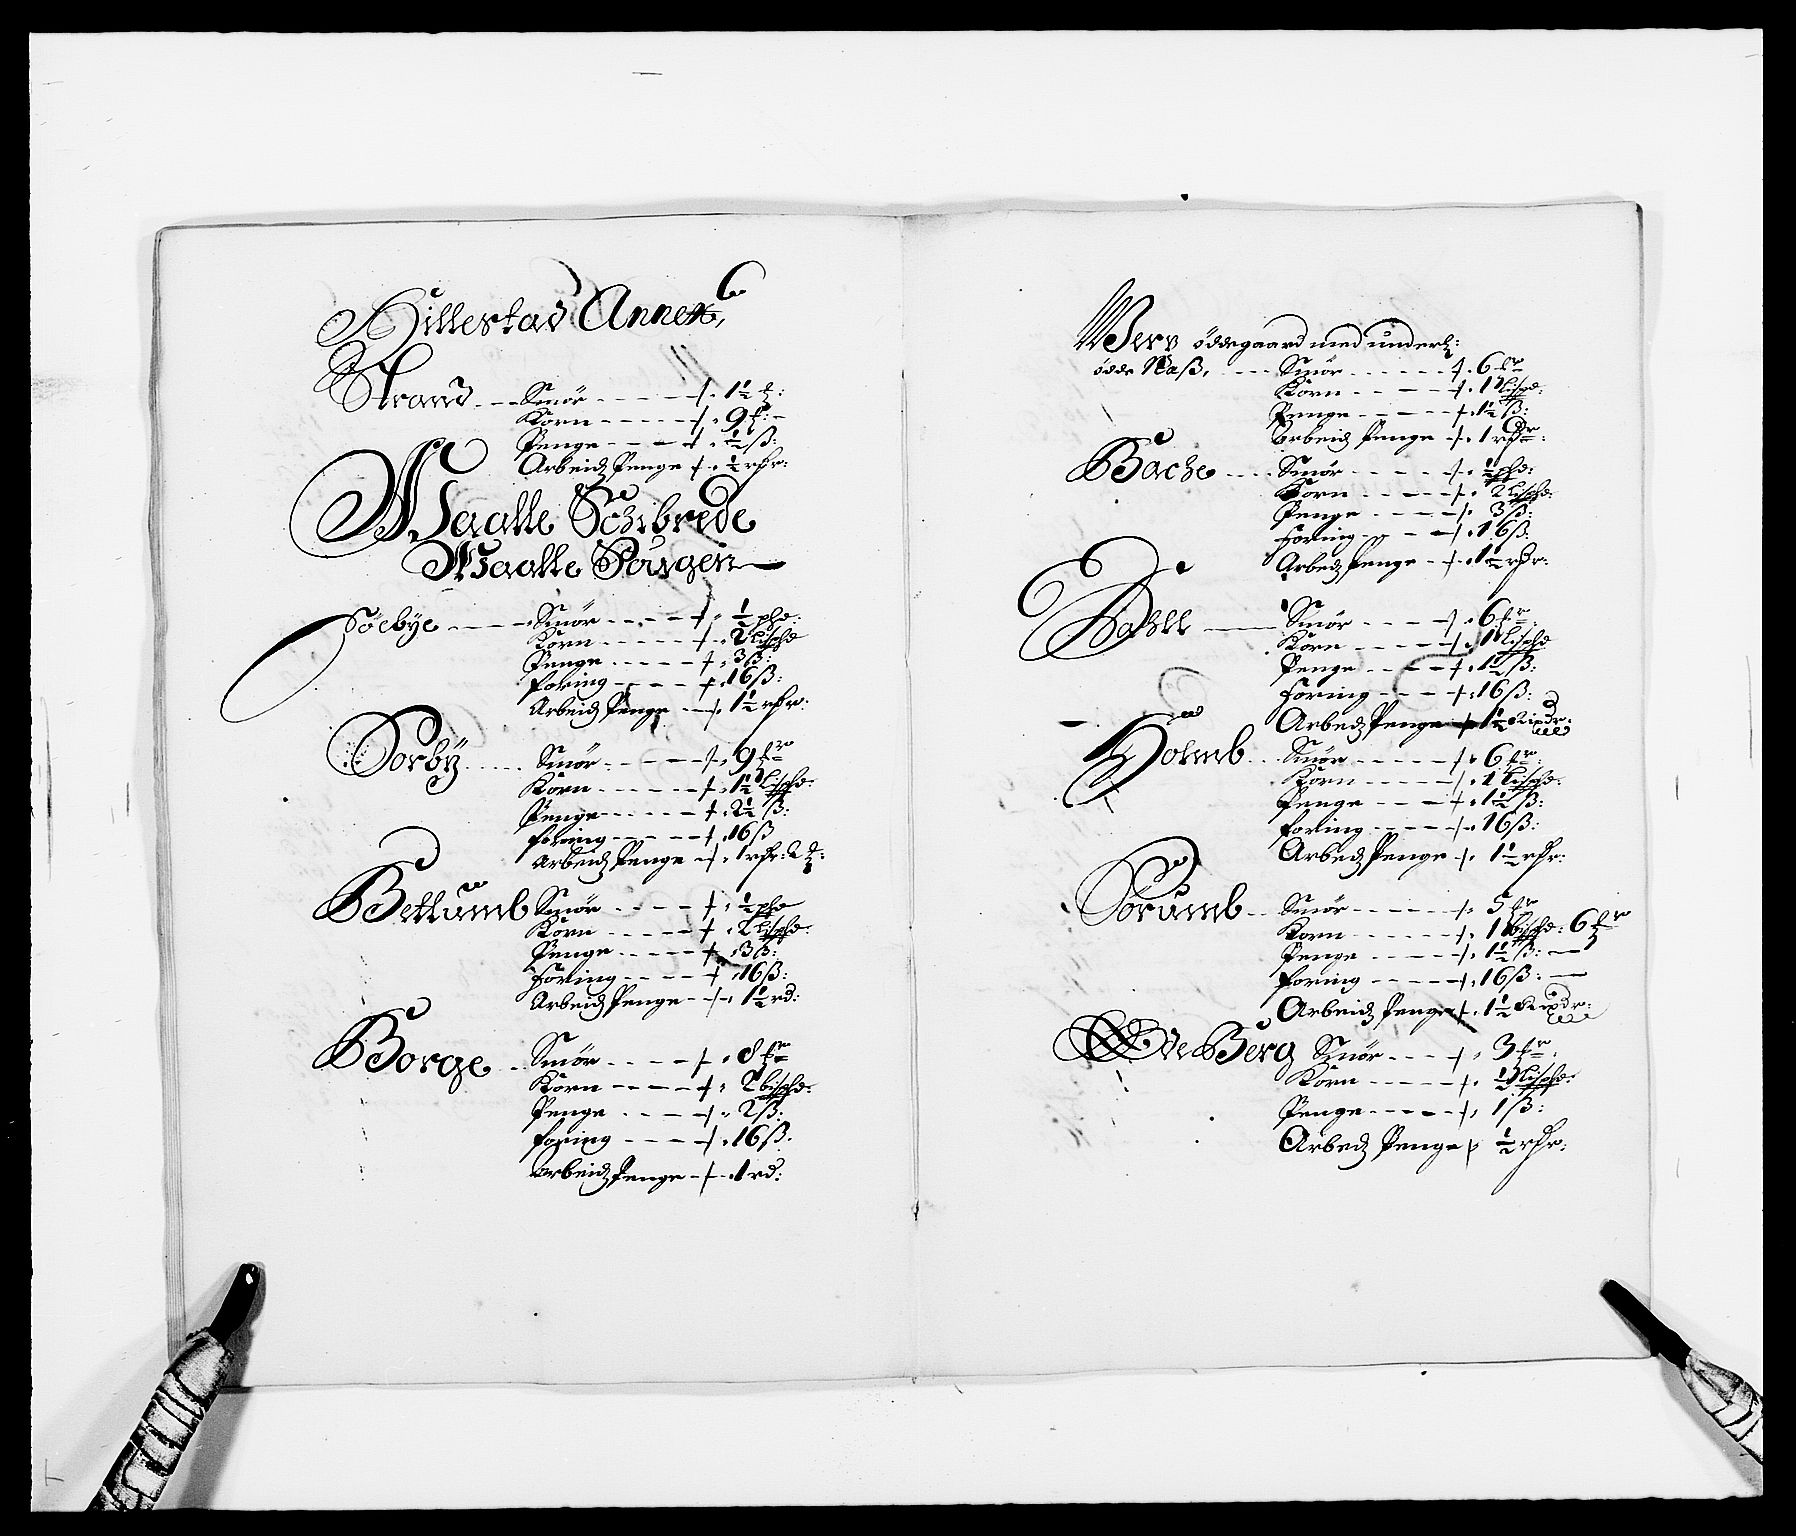 Hillestad Annex,
Strand - - Smör - - - - - 1½ ℔:
Korn - - - - - 9 ℔: -
Penge - - - - ½ ß:
Arbeidz Penge - ½ rdr:
Waalle Schibrede
Waalle Sougen
Söebye - - - Smör - - - - ½ phd:
Korn - - - - - 2 Lisphd
Penge - - - - - 3 ß:
foring - - - - 16 ß:
Arbeidz Penge - - 1½ rdr:
Sorbÿ - - - Smör - - - - - 9 ℔r
Korn - - - - - 1½ Lisphd:
Penge - - - - - 2½ ß:
foring - - - - - 16 ß
Arbeidz Penge - - 1 rdr: 2 ℔:
Bettumb Smör - - - - ½ phd
Korn - - - - - 2 Lisphd:
Penge - - - - - 3 ß:
foring - - - - 16 ß:
Arbeidz Penge - - 1½ rd:
Borge - - Smör - - - - 8 ℔r
Korn - - - - - 2 Lisphd:
Penge - - - - 2 ß:
foring - - - - 16 ß:
Arbeidz Penge - - 1 rd:
ödegaard med underl:
öde Naß, - - - Smör - - - - - - 6 ℔r
Korn - - - - - 1 Lispd:
Penge - - - - - 1½ ß:
Arbeidz Penge - 1 rdr:
Bache - - - Smör - - - - - ½ phd:
Korn - - - - - 2 Lisphd:
Penge - - - - - 3 ß:
foring - - - - 16 ß:
Arbedz Penge - - 1½ rdr:
Dahll - - - Smör - - - - - 6 ℔r:
Korn - - - - - 1 Lisphd
Penge - - - - - 1½ ß:
foring - - - - - 16 ß:
Arbedz Penge - 1½ Rixdr:
Holmb - - Smör - - - - - 6 ℔r:
Korn - - - - - - 1 Lisphd:
Penge - - - - - 1½ ß:
foring - - - - - 16 ß:
Arbedz Penge - - 1½ rdr:
Sorumb - - Smör - - - - - 5 ℔r
Korn - - - - - - 1 Lisphd: 6 ℔r
Penge - - - - - 1½ ß: -
foring - - - - - 16 ß: -
Arbeidz Penge - 1½ Rixdr:
Berg Smör - - - - 3 ℔r:
Korn - - - - - ½ Lisphd:
Penge - - - - - 1 ß:
Arbedz Penge - ½ rdr: